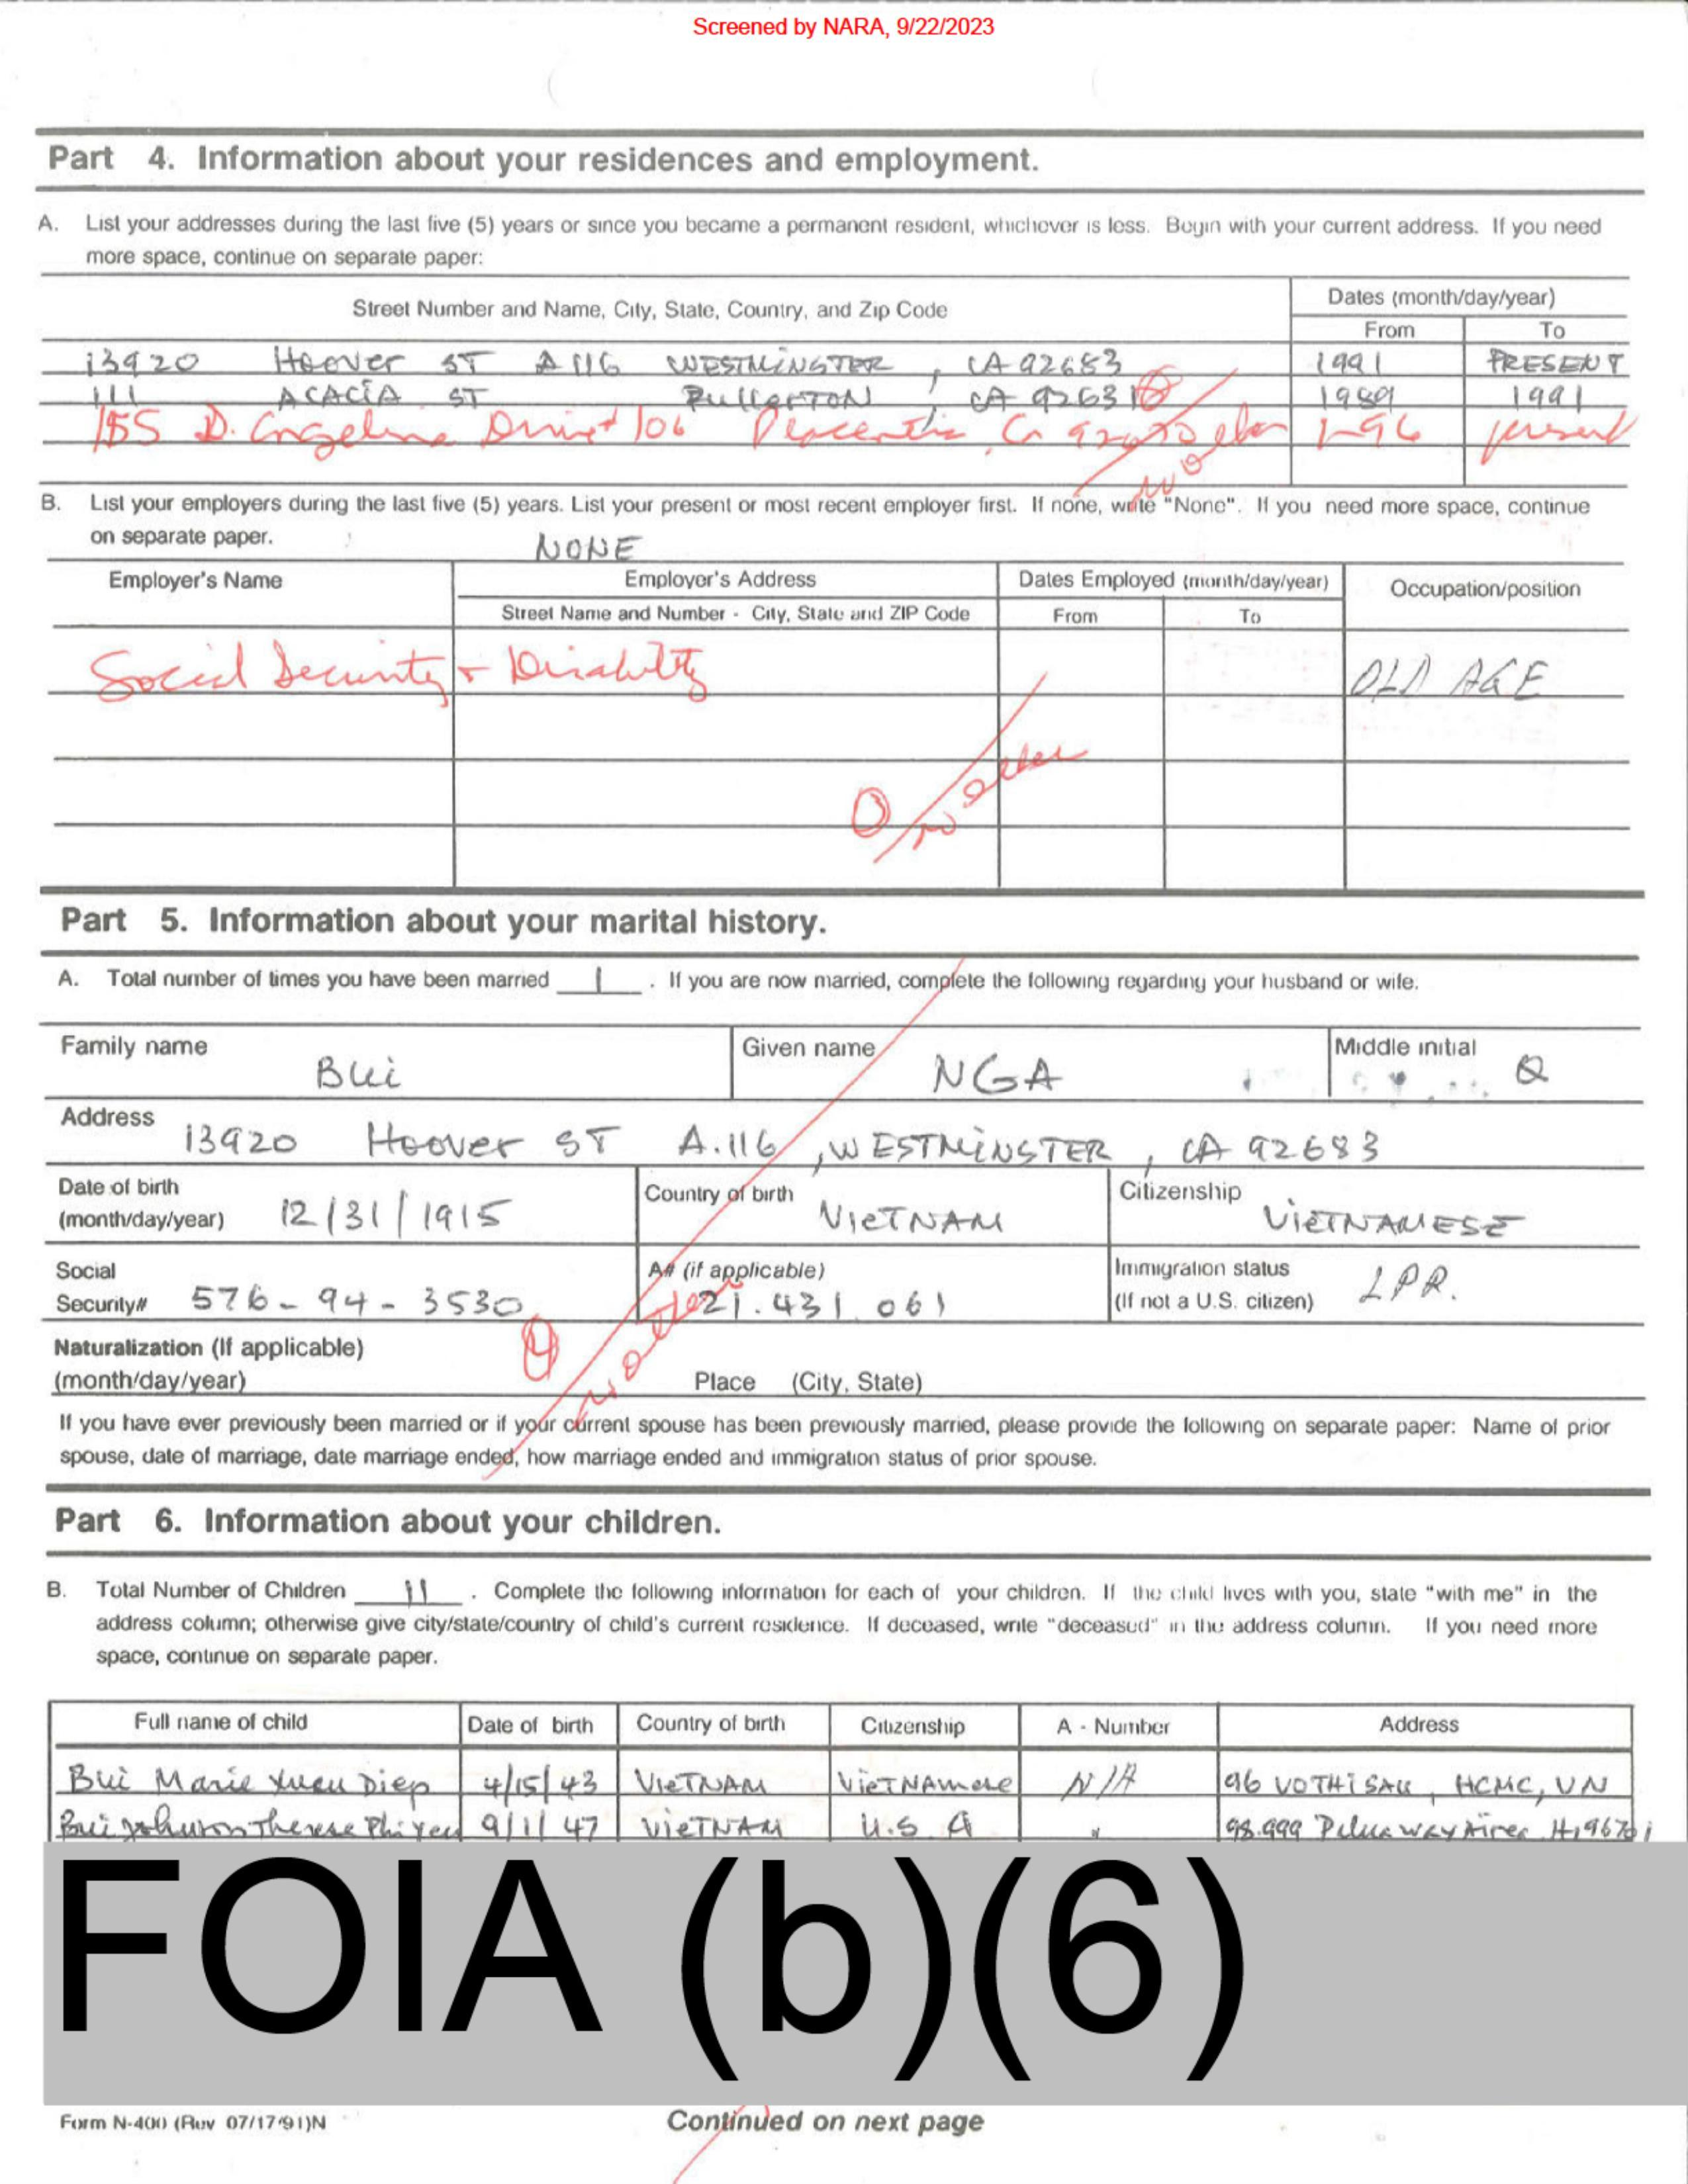 Screened by NARA, 9/22/2023
Part 4. Information about your residences and employment.
A. List your addresses during the last five (5) years or since you became a permanent resident, whichever is less. Begin with your current address. If you need
more space, continue on separate paper:
Street Number and Name, City, State, Country, and Zip Code
Dates (month/day/year)
From To
13920 Hoover ST A 116 WESTMINSTER, CA 92683 1991 PRESENT
111 ACACIA ST FULLERTON, CA 92631 1989 1991
155 D. Angeline Drive # 106 Placentia, Ca 92670 1-96 present
no other
B. List your employers during the last five (5) years. List your present or most recent employer first. If none, write "None". If you need more space, continue
on separate paper. NONE
Employer's Name Employer's Address Dates Employed (month/day/year) Occupation/position
Street Name and Number - City, State and ZIP Code From To
Social Security + Disability OLD AGE
no other
Part 5. Information about your marital history.
A. Total number of times you have been married 1. If you are now married, complete the following regarding your husband or wife.
Family name Bui Given name NGA Middle initial Q
Address 13920 Hoover ST A.116, WESTMINSTER, CA 92683
Date of birth Country of birth Citizenship
(month/day/year) 12/31/1915 VIETNAM VIETNAMESE
Social A# (if applicable) Immigration status
Security# 576-94-3530 21.431.061 (If not a U.S. citizen) LPR.
Naturalization (If applicable)
(month/day/year) Place (City, State)
no other
If you have ever previously been married or if your current spouse has been previously married, please provide the following on separate paper: Name of prior
spouse, date of marriage, date marriage ended, how marriage ended and immigration status of prior spouse.
Part 6. Information about your children.
B. Total Number of Children 11. Complete the following information for each of your children. If the child lives with you, state "with me" in the
address column; otherwise give city/state/country of child's current residence. If deceased, write "deceased" in the address column. If you need more
space, continue on separate paper.
Full name of child Date of birth Country of birth Citizenship A - Number Address
Bui Marie Xuan Diep 4/15/43 VIETNAM VIETNAMese N/A 96 VO THI SAU, HCMC, VN
Bui Johnson Therese Phi Yen 9/1/47 VIETNAM U.S A " 98.999 way
FOIA (b)(6)
Form N-400 (Rev 07/17/91)N Continued on next page